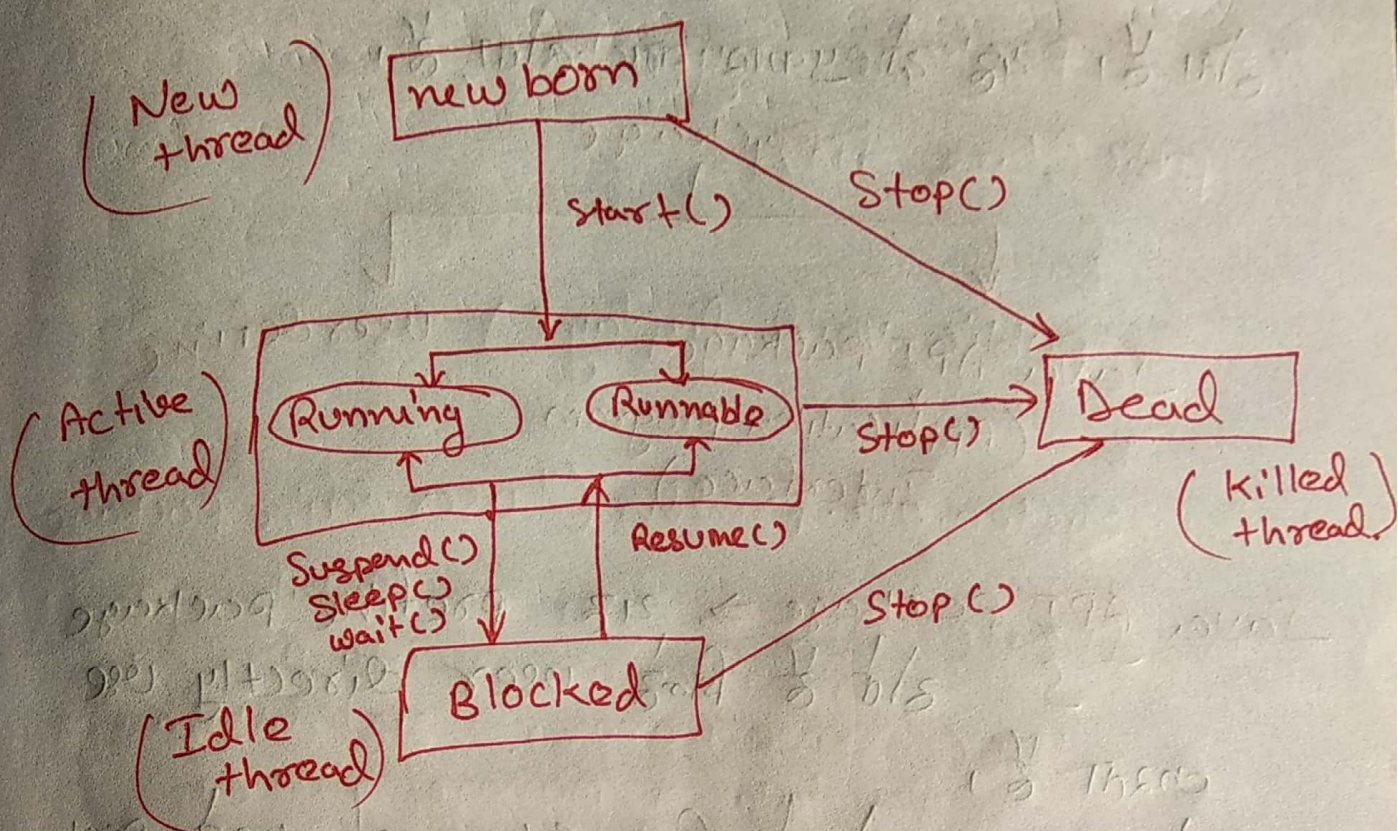 (New
thread)
new born
Start()
Stop()
(Active
thread)
Running
Runnable
Stop()
Dead
(Killed
thread)
Suspend()
Sleep()
wait()
Resume()
Stop()
Blocked
(Idle
thread)